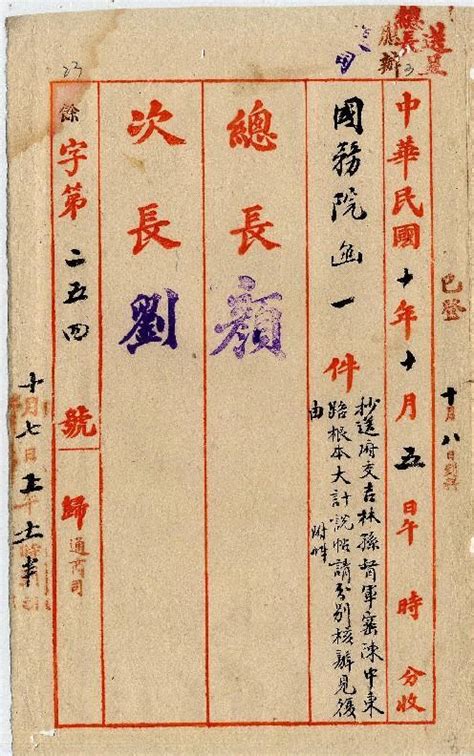 送呈
總長
已登
中華民國十年十月五日午 時 分收
國務院函一件
抄送府交吉林孫督軍密陳中東
路根本大計說帖請分別核辦見後
由 附件
總長顏
次長劉
餘字第二五四號 歸通商司
23
十月七日上午十一時半
十月八日